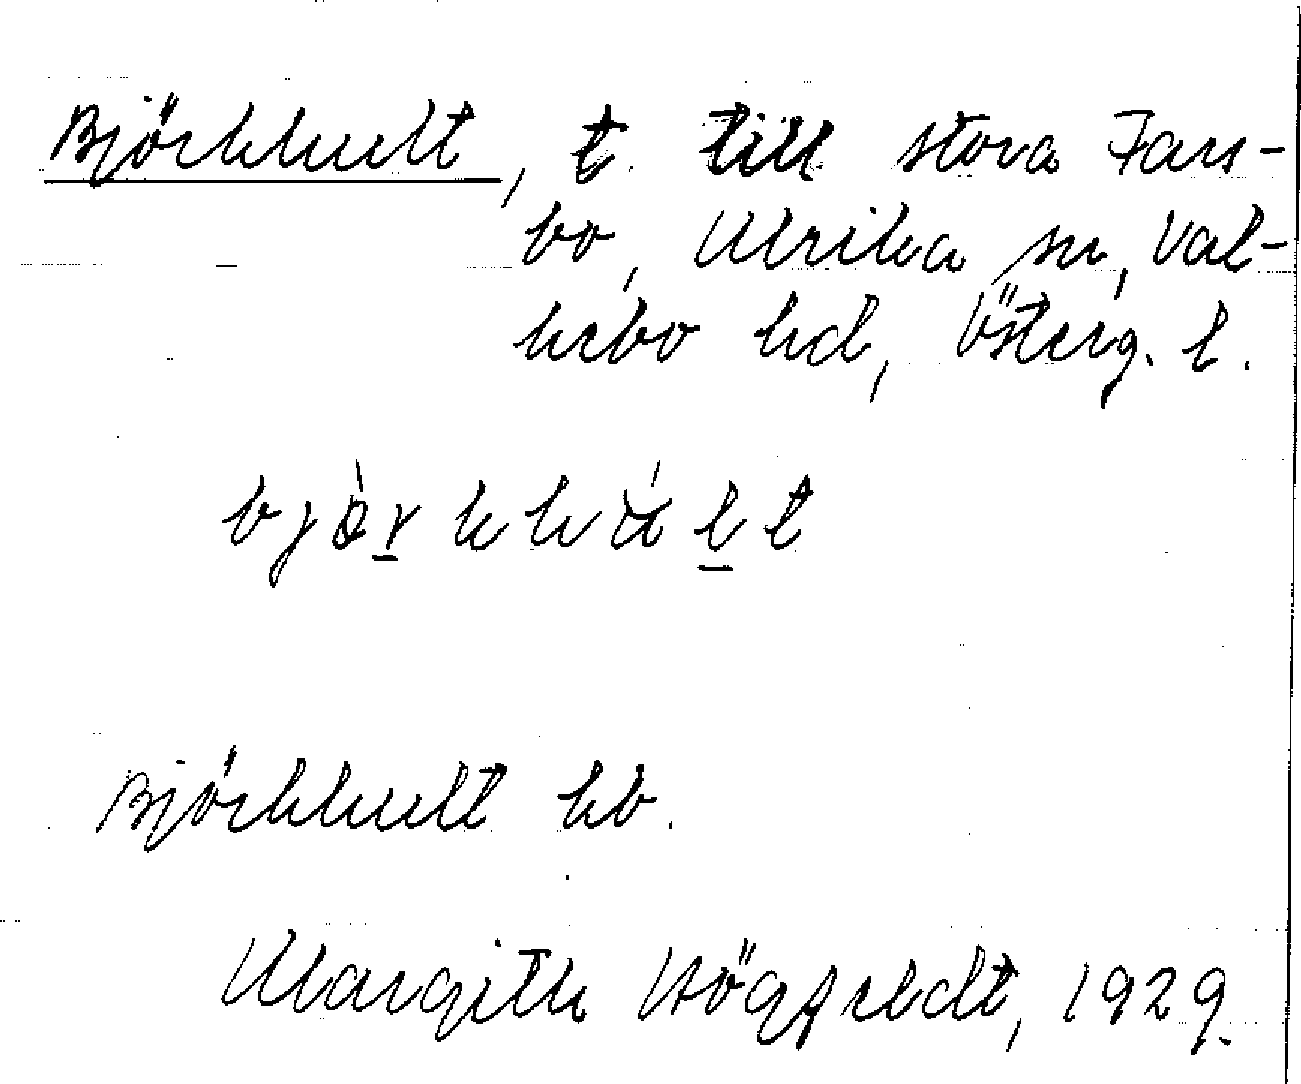 Björkhult, t. till Stora Fars-
bo, Ulrika sn, Val-
kebo hd, Österg. l.
bjö̀rkhúlt
Björkhult hb.
Margith Högfeldt, 1929.